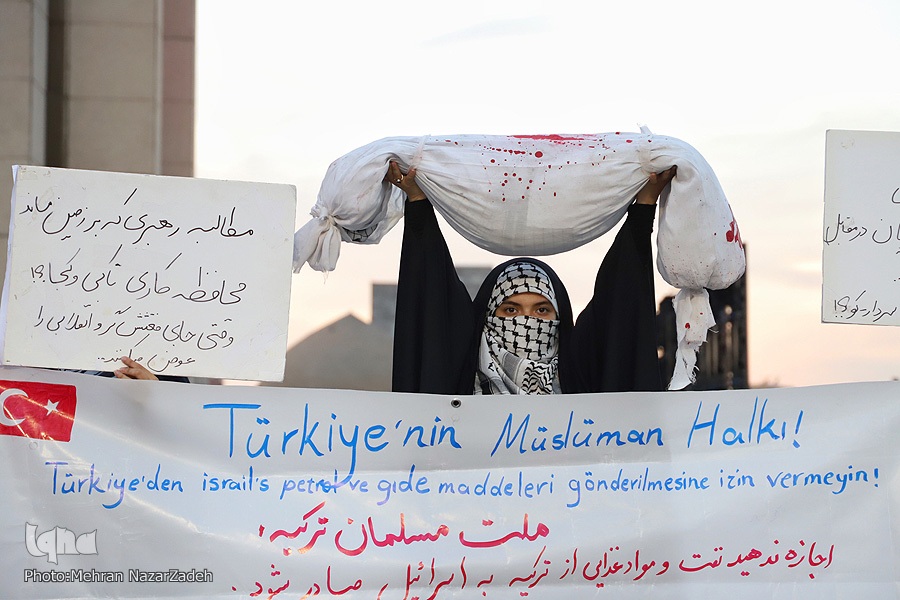 مطالبه رهبری که بر زمین ماند
محافظه کاری تا کی و کجا؟!
وقتی جای فتنه‌گر و انقلابی را
عوض میکنند...
ان در مقابل
سردار کو؟!
Türkiye'nin Müslüman Halkı!
Türkiye'den israil's petrol ve gıde maddeleri gönderilmesine izin vermeyin!
ملت مسلمان ترکیه،
اجازه ندهید نفت و مواد غذایی از ترکیه به اسرائیل صادر شود.
iqna
Photo:Mehran NazarZadeh